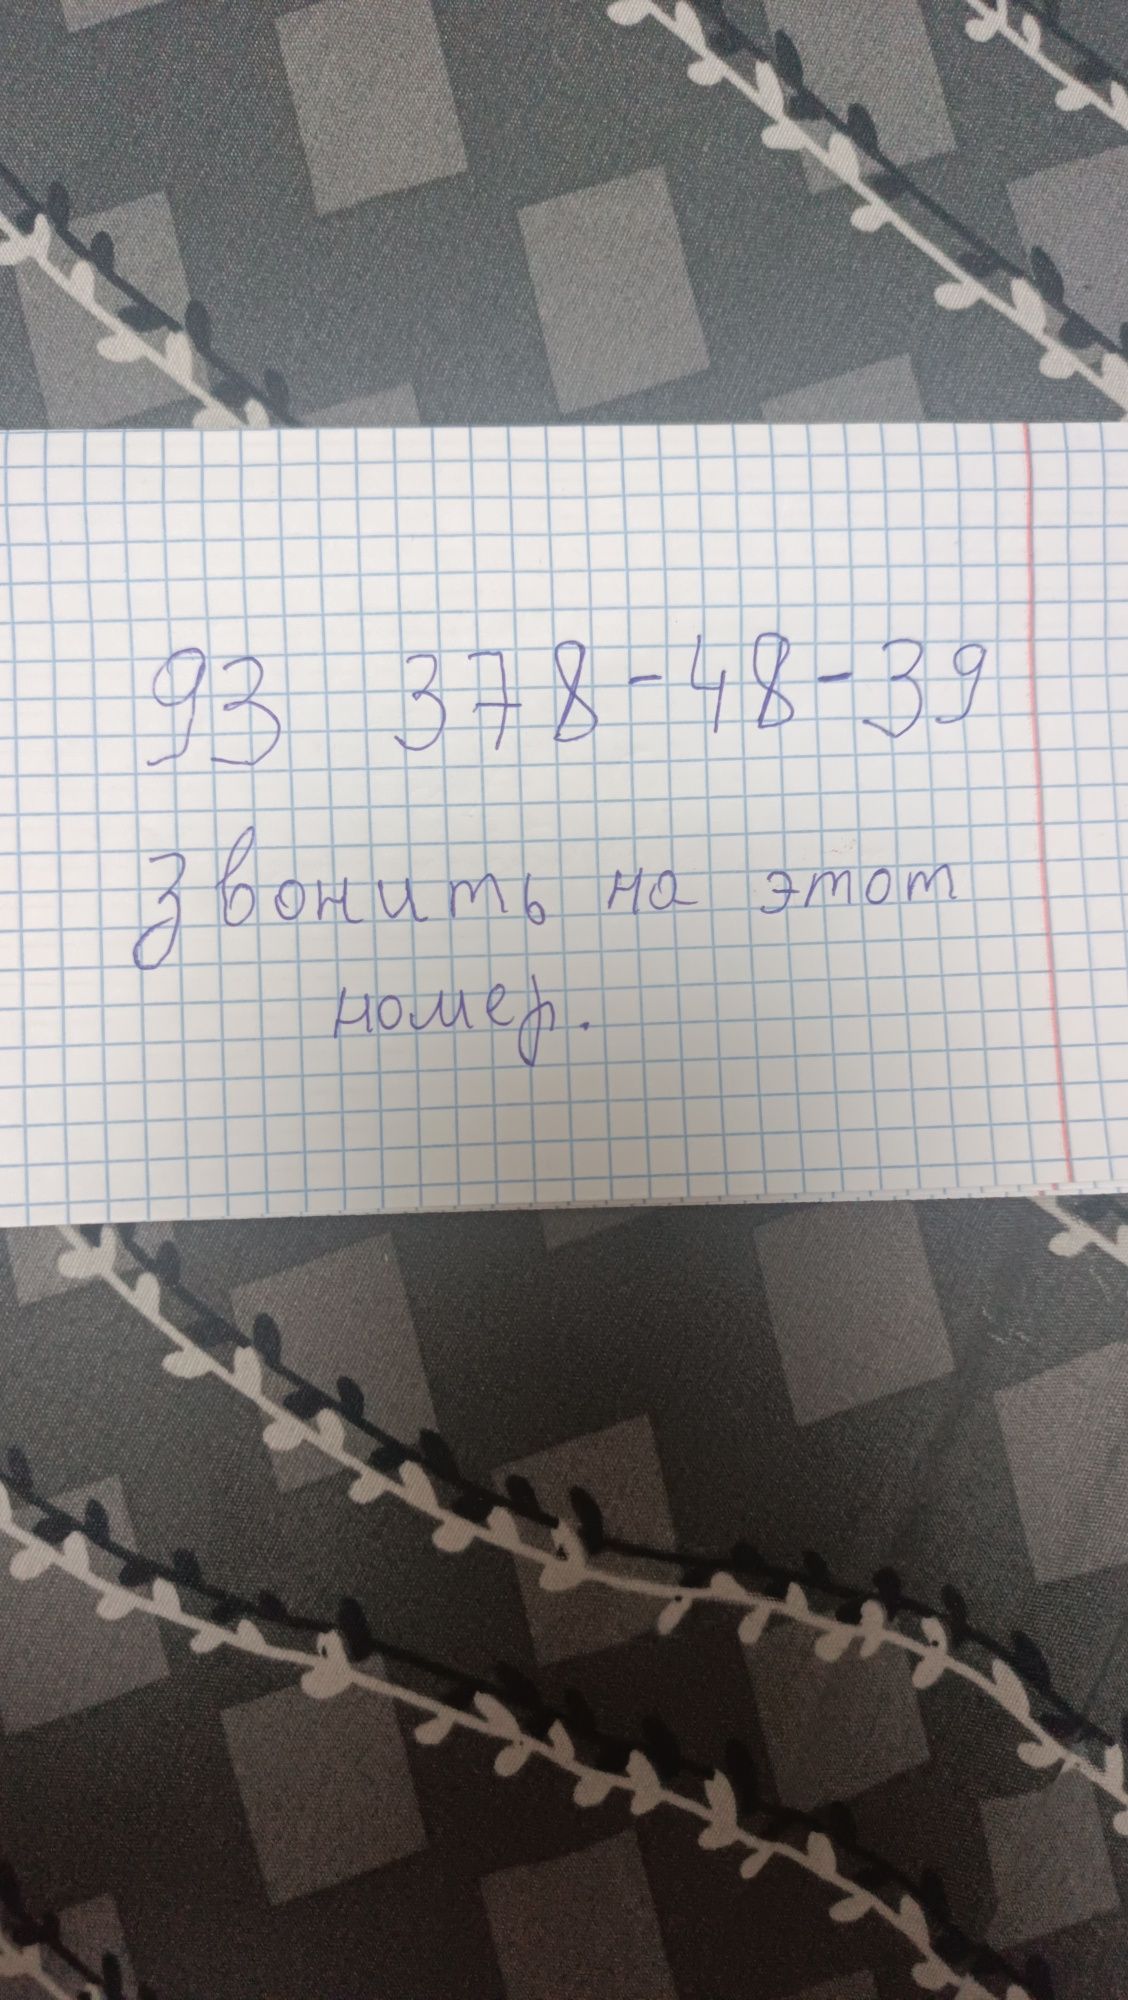 93 378-48-39
Звонить на этот
номер.